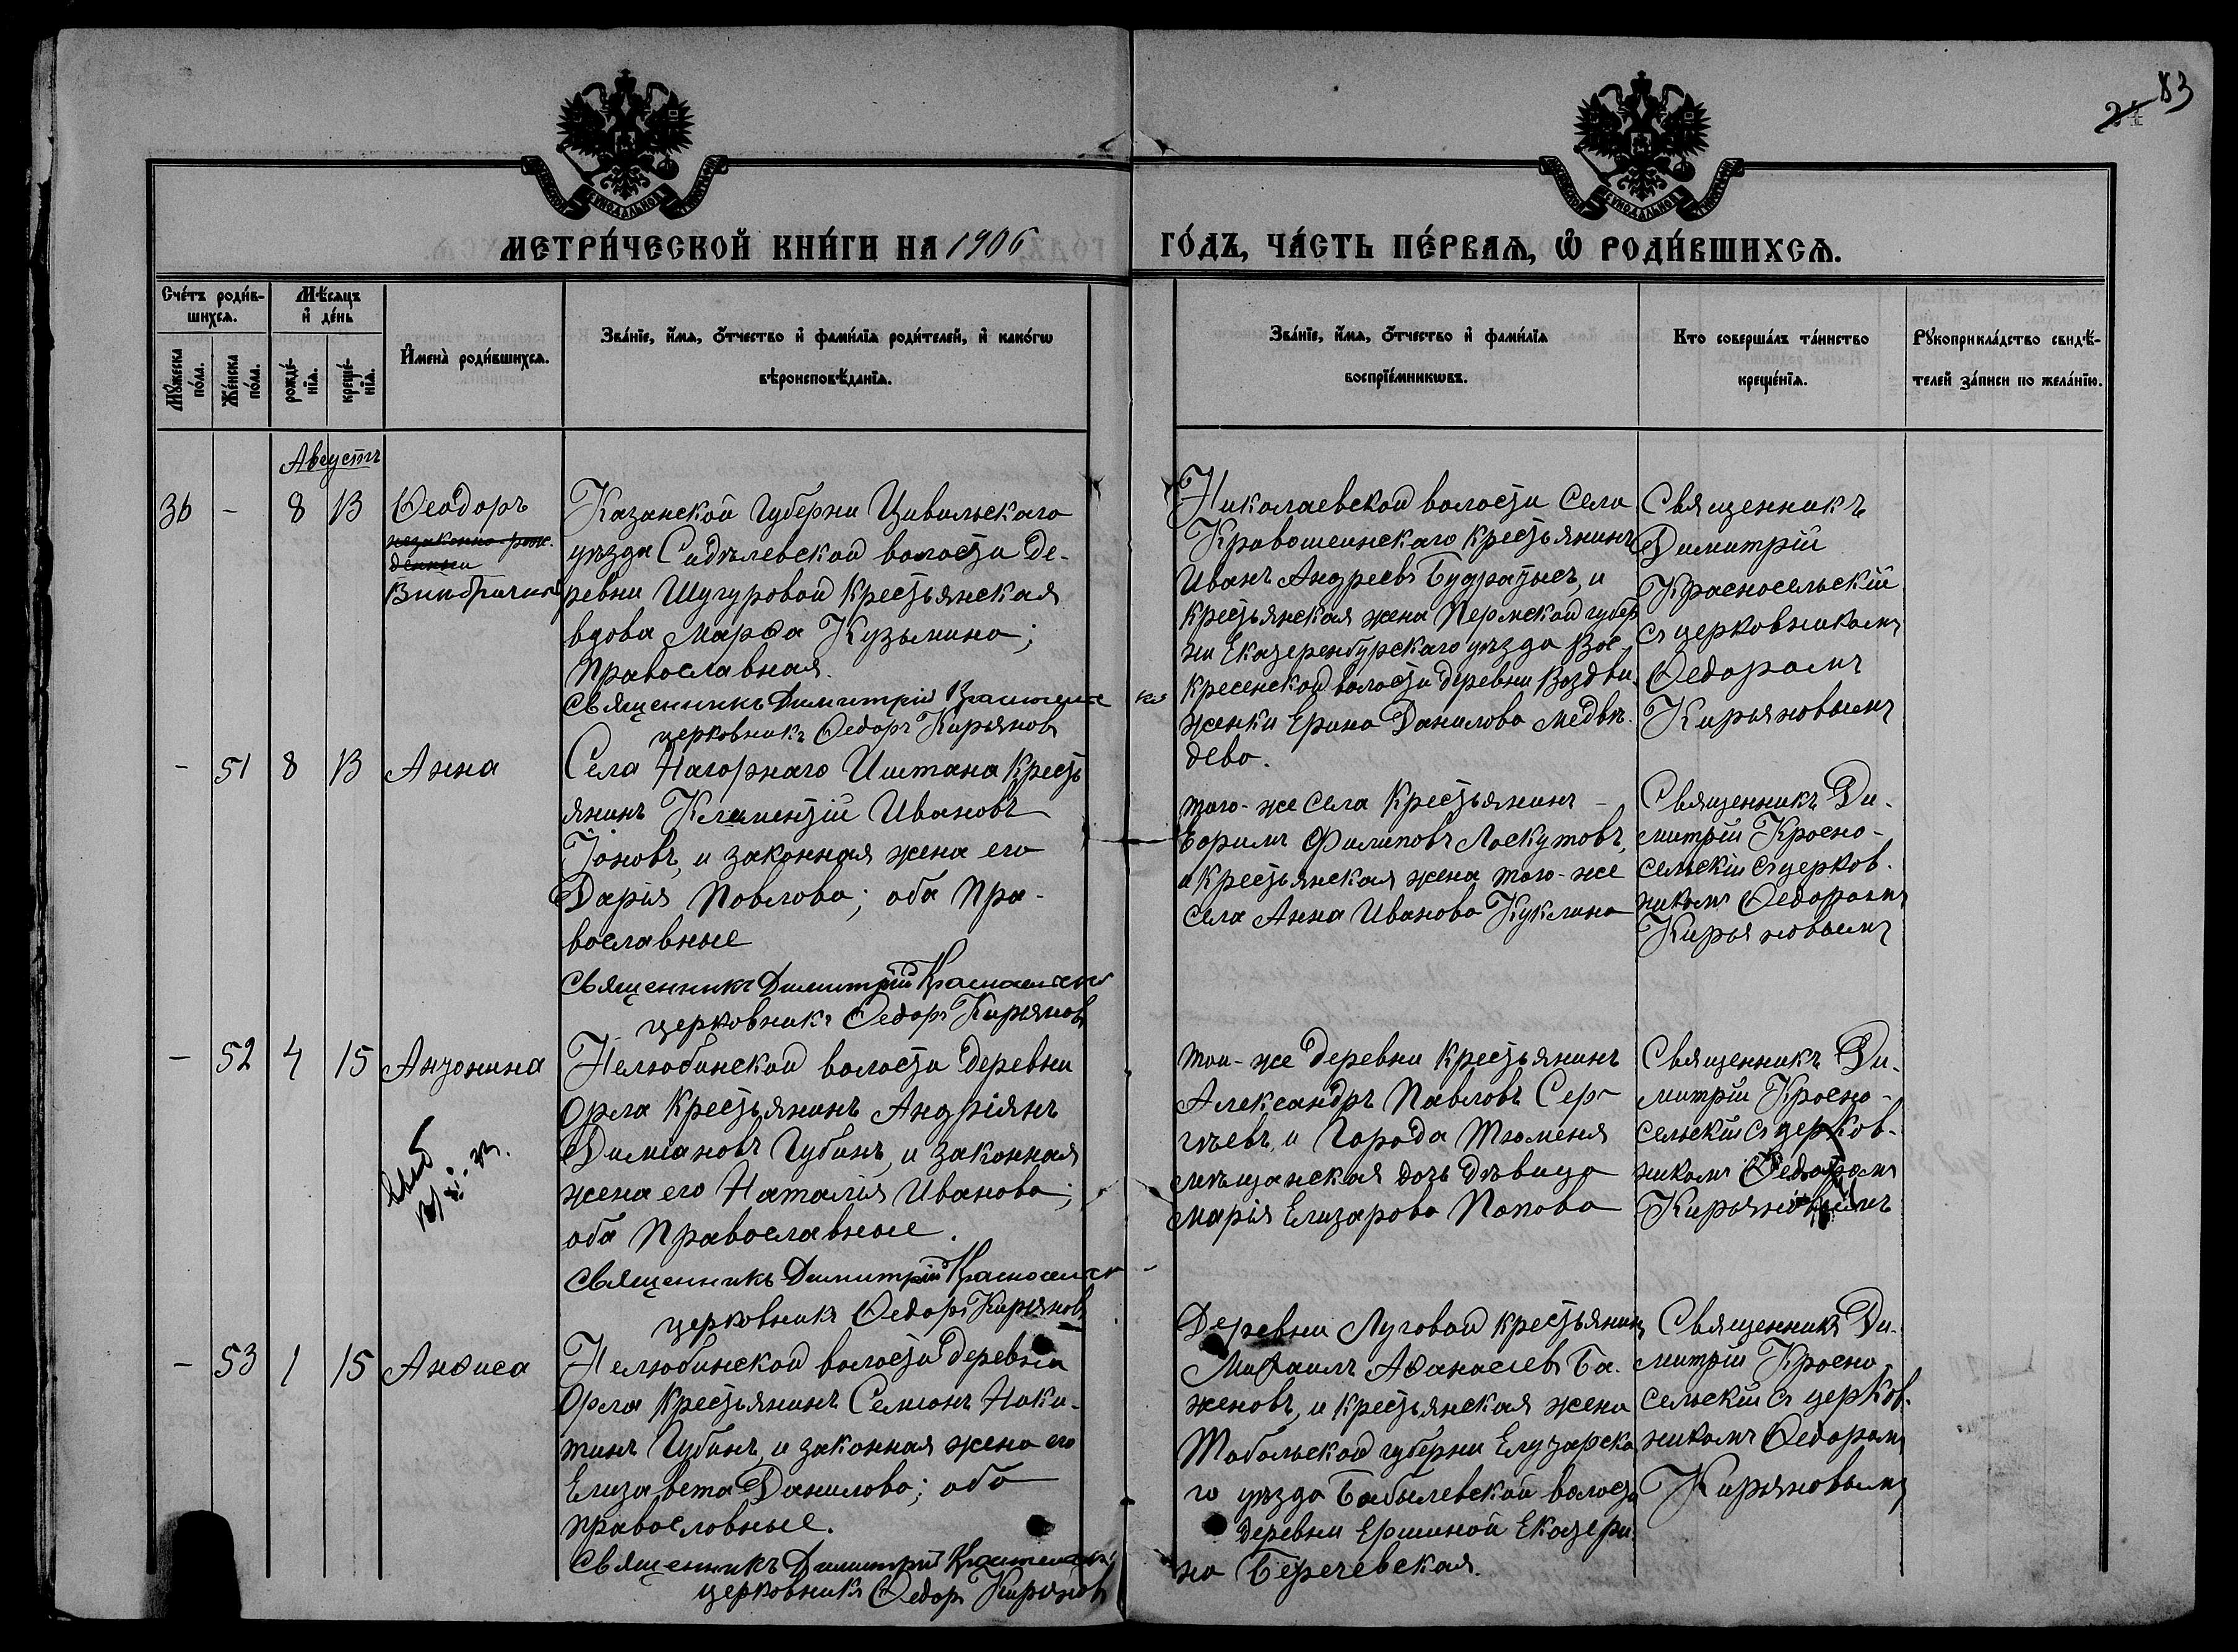 83
34
МЕТРИ́ЧЕСКОЙ КНИ́ГИ НА 1906
ГО́ДЪ, ЧА́СТЬ ПЕ́РВАѦ, Ѡ РОДИ́ВШИХСѦ.
Сче́тъ роди́в-
шихсѧ.
Мѣ́сѧцъ
и҆ де́нь
Мꙋ́жеска
по́ла.
Же́нска
по́ла.
рожде́-
нїѧ.
креще́-
нїѧ.
И҆мена̀ роди́вшихсѧ.
Зва́нїе, и҆́мѧ, ѻ҆́тчество и҆ фами́лїѧ роди́телей, и҆ како́гѡ
вѣроисповѣ́данїѧ.
Зва́нїе, и҆́мѧ, ѻ҆́тчество и҆ фами́лїѧ
воспрїе́мникѡвъ.
Кто соверша́лъ та́инство
креще́нїѧ.
Рꙋкоприкла́дство свидѣ́-
телей за́писи по жела́нїю.
Августъ
36 - 8 13 Ѳеодоръ
незаконно-рож-
денный
Казанской Губерни Цивильскаго
уѣзда Сидѣлевской волости де-
ревни Шугуровой крестьянская
вдова Марѳа Кузьмина;
Православная.
Священникъ Димитрій
церковникъ Ѳедоръ Кирьяновъ
Николаевской волости села
Кривошеинскаго крестьянинъ
Иванъ Андреевъ и
крестьянская жена Пермской губер
ни Екатеренбурскаго уѣзда Вос-
кресенской волости деревни Воздви
женки Ерина Данилова Медвѣ-
дева.
Священникъ
Димитрій
Красносельскій
съ церковникомъ
Ѳедоромъ
Кирьяновымъ
- 51 8 13 Анна
Села Нагорнаго Иштана кресть
янинъ Клементій Ивановъ
Іоновъ, и законная жена его
Дарія Повлова; оба Пра-
вославные
Священникъ Димитрій Красносельскій
церковникъ Ѳедоръ Кирьяновъ
того-же села крестьянинъ -
Ѳилиповъ Лоскутовъ,
и крестьянская жена того-же
села Анна Иванова Куклина
Священникъ Ди-
митрій Красно-
сельскій съ церков-
никомъ Ѳедоромъ
Кирьяновымъ
- 52 4 15 Антонина
Нелюбинской волости деревни
Орла крестьянинъ Андріянъ
Димiановъ Губинъ, и законная
жена его Наталія Иванова;
оба Православные.
Священникъ Димитрій Красносельск
церковникъ Ѳедоръ Кирьяновъ
той-же деревни крестьянинъ
Александръ Павловъ Сер-
гѣевъ, и города Тюменя
мѣщанская дочь дѣвица
Марія Елизарова Попова
Священникъ Ди-
митрій Красно-
сельскій съ церков-
никомъ Ѳедоромъ
Кирьяновымъ
- 53 1 15 Анѳиса
Нелюбинской волости деревни
Орла крестьянинъ Семіонъ Ники-
тинъ Губинъ, и законная жена его
Елизавета Данилова; оба
православные.
Священникъ Димитрій
церковникъ Ѳедоръ Кирьяновъ
Деревни Луговой крестьянинъ
Михаилъ Аѳанасіевъ Ба-
женовъ, и крестьянская жена
Тобольской губерни
го уѣзда волости
деревни Ершиной Екатери-
на
Священникъ Ди-
митрій Красно
сельскій съ церков-
никомъ Ѳедоромъ
Кирьяновымъ